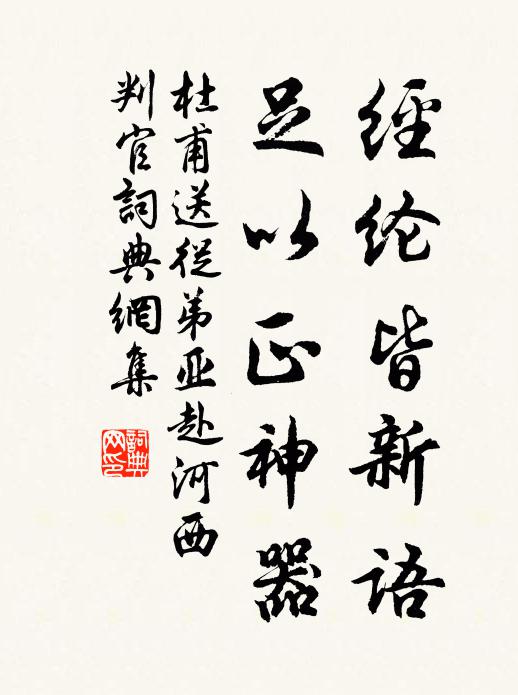 經纶皆新语
足以正神器
杜甫送從弟亚赴河西
判官詞典網集
詞典网印